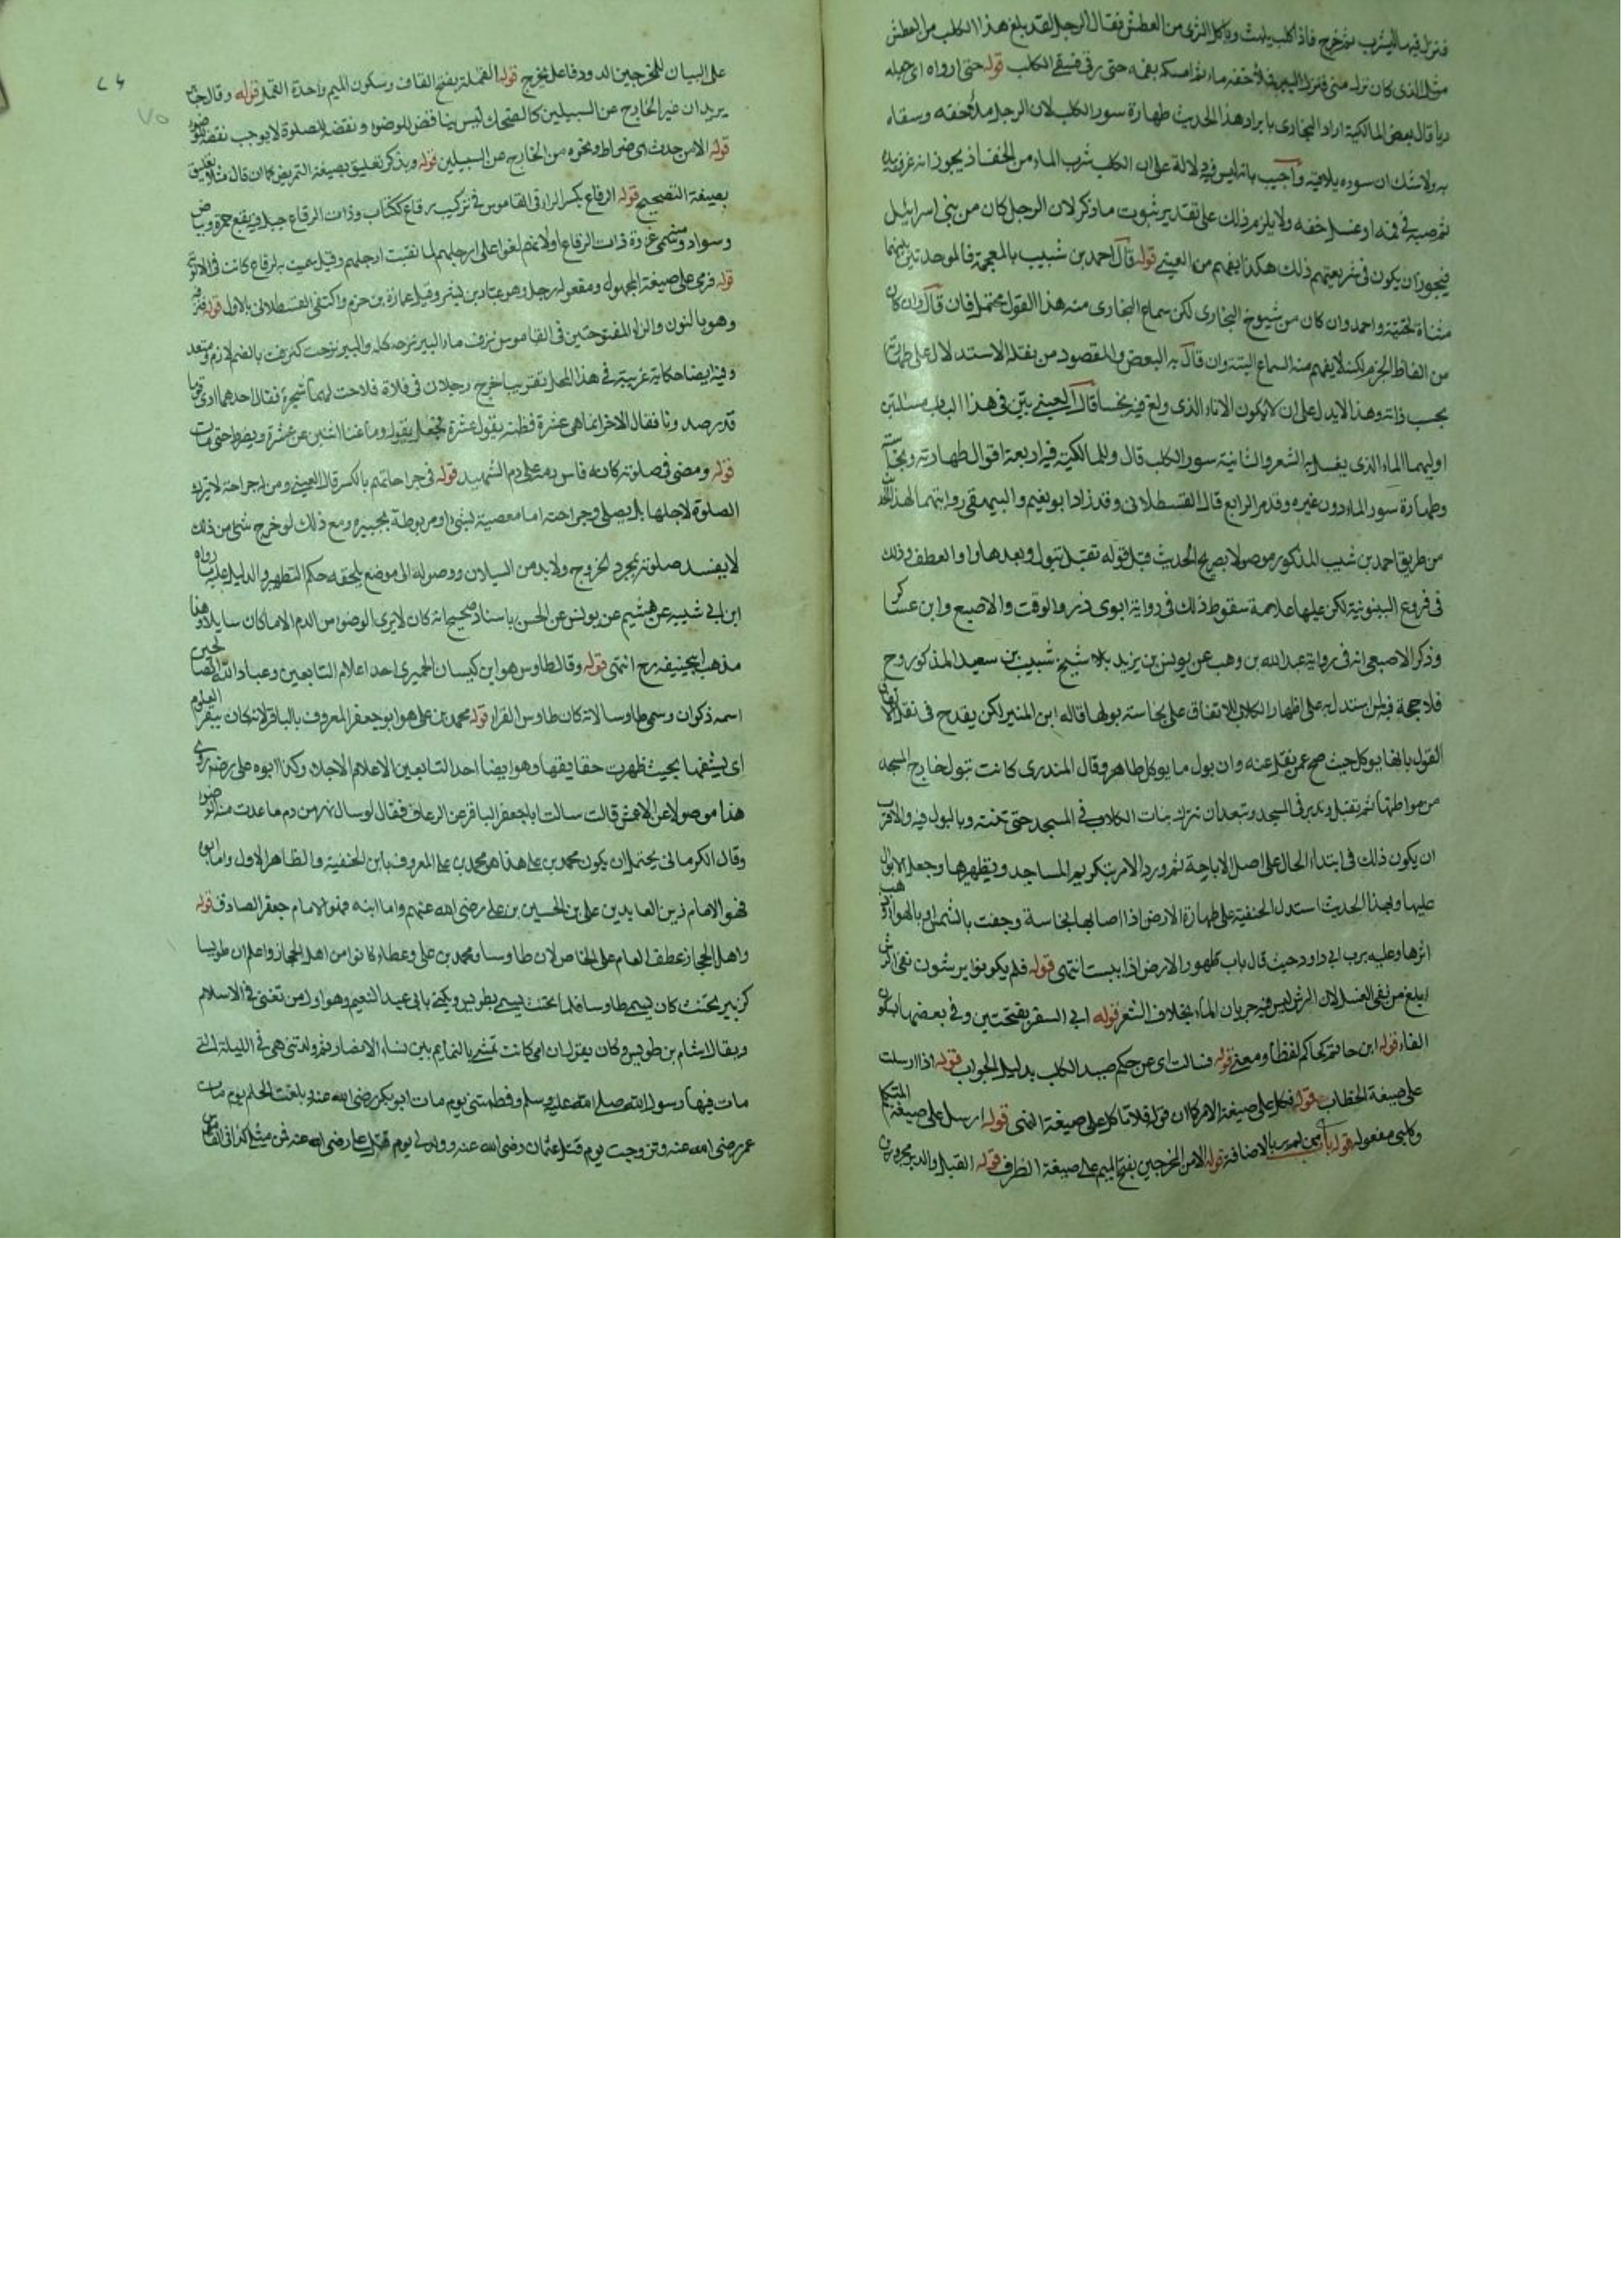 فنزل فيها ليشرب ثم خرج فاذا كلب يلهث وياكل الثرى من العطش فقال الرجل لقد بلغ هذا الكلب من العطش
مثل الذى كان نزله منى فنزل البير فملأ خفه ماء ثم امسكه بفمه حتى رقى فسقى الكلب قوله حتى ارواه اى جعله
ريا قال بعض المالكية اراد البخارى بايراد هذا الحديث طهارة سور الكلب لان الرجل ملأ خفه وسقاه
به ولا شك ان سوره يلاقيه واجيب بانه ليس فيه دلالة على ان الكلب شرب الماء من الخف اذ يجوز انه غرفه به
ثم صبه فى فمه او غسل خفه ولا يلزم ذلك على تقدير ثبوت ما ذكر لان الرجل كان من بنى اسرائيل
فيجوز ان يكون فى شريعتهم ذلك هكذا يفهم من العينى قوله قال احمد بن شبيب بالمعجمة فالموحدتين بينهما
مثناة تحتية واحمد وان كان من شيوخ البخارى لكن سماع البخارى منه هذا القول محتمل فان قال وان كان
من الفاظ الجزم لكنه لا يفهم منه السماع البتة وان قال به البعض والمقصود من نقله الاستدلال على طهارتها
بحسب ذاته وهذا لا يدل على ان لا يكون الاناء الذى ولغ فيه نجسا قال العينى بين فى هذا الباب مسئلتين
اوليهما الماء الذى يغسل به الشعر والثانية سور الكلب قال وللمالكية فيه اربعة اقوال طهارته ونجاسته
وطهارة سور الماذون غيره وقدم الرابع قال القسطلانى وقد زاد ابو نعيم والبيهقى روايتهما لهذا
من طريق احمد بن شبيب المذكور موصولا بصريح الحديث قبل قوله تقبل تبول وبعدها واو العطف وذلك
فى فروع اليونينية لكن عليها علامة سقوط ذلك فى رواية ابوى ذر والوقت والاصيع وابن عساكر
وذكر الاصيعى انه فى رواية عبد الله بن وهب عن يونس بن يزيد شيخ شبيب بن سعيد المذكور وح
فلا حجة فيه لمن استدل به على اظهار الكلاب للاتفاق على نجاسة بولها قاله ابن المنير لكن يقدح فى نقل
القول بانها يوكل حيث صح عمن نقل عنه وان بول ما يوكل طاهر وقال المنذرى كانت تبول خارج المسجد
من مواطنها ثم تقبل وتدبر فى المسجد ويبعد ان تترك بنات الكلاب فى المسجد حتى تمتهنه وبالبول فيه والاقرب
ان يكون ذلك فى ابتداء الحال على اصل الاباحة ثم ورد الامر بتكريم المساجد وتطهيرها وجعل الابواب
عليها وبهذا الحديث استدل الحنفية على طهارة الارض اذا اصابها نجاسة وجفت بالشمس او بالهواء
اثرها وعليه بوب ابى داود حيث قال باب طهور الارض اذا يبست انتهى قوله فلم يكونوا يرشون نفى الرش
ابلغ من نفى الغسل لان الرش ليس فيه جريان الماء بخلاف الشعر قوله ابى السفر بفتحتين وفى بعضها بسكون
الفاء قوله ابن حاتم كحاكم لفظا ومعنى قوله فسالت اى عن حكم صيد الكلب بدليل الجواب قوله اذا ارسلت
على صيغة الخطاب قوله فكل على صيغة الامر كما ان قوله فلا تاكل على صيغة النهى قوله ارسل على صيغة المتكلم
وكلبى مفعوله قوله باب من لم ير بالاضافة قوله الا من المخرجين بفتح الميم على صيغة الظرف قوله القبل والدبر مجروران
على البيان للمخرجين الدود وفاعل يخرج قوله القملة بفتح القاف وسكون الميم واحدة القمل قوله وقال جابر
يريد ان غير الخارج عن السبيلين كالضحك ليس بناقض للوضوء ونقضه للصلوة لا يوجب نقض الوضوء
قوله الا من حدث اى ضراط ونحوه من الخارج من السبيلين قوله ويذكر تعليق بصيغة التمريض كما ان قال مثلا تعليق
بصيغة التصحيح قوله الرقاع بكسر الراء فى القاموس فى تركيب رقاع ككتاب وذات الرقاع جبل فيه بقع حمرة وبياض
وسواد ومنه سمى غزوة ذات الرقاع او لانهم لفوا على ارجلهم لما نقبت ارجلهم وقيل سميت به لرقاع كانت فى الالوية
قوله فرمى على صيغة المجهول ومفعوله رجل وهو عباد بن بشر وقيل عمارة بن حزم واكتفى القسطلانى بالاول قوله فنزف
وهو بالنون والزاء المفتوحتين فى القاموس نزف ماء البير نزحه كله والبير نزحت كنزفت بالضم لازم ومتعد
وفيه ايضا حكاية غريبة فى هذا المحل تقريبا خرج رجلان فى فلاة فلاحت لهما شجرة فقال احدهما ارى قوما
قد رصدونا فقال الاخر انما هى عشرة فظنه يقول عشرة فجعل يقول وما غنا اثنين عن عشرة ويضرط حتى مات
قوله ومضى فى صلوته كانه قاس دمه على دم الشهيد قوله فى جراحاتهم بالكسر قال العينى ومن له جراحة لا يترك
الصلوة لاجلها بل يصلى وجراحته اما معصبة بشئ او مربوطة بجبيرة ومع ذلك لو خرج شئ من ذلك
لا يفسد صلوته بمجرد الخروج ولا بد من السيلان ووصوله الى موضع يلحقه حكم التطهير والدليل عليه ما رواه
ابن ابى شيبه عن هشيم عن يونس عن الحسن باسناد صحيح انه كان لا يرى الوضوء من الدم الا ما كان سايلا وهذا
مذهب ابيحنيفه رح انتهى قوله وقال طاوس هو ابن كيسان الحميرى احد اعلام التابعين وعباد الله الصالحين
اسمه ذكوان وسمى طاوسا لانه كان طاوس القراء قوله محمد بن على هو ابو جعفر المعروف بالباقر لانه كان يبقر العلوم
اى يشقها بحيث ظهرت حقايقها وهو ايضا احد التابعين الاعلام الاجلاء وكذا ابوه على رضه روى
هذا موصولا عن الاعمش قالت سالت ابا جعفر الباقر عن الرعاف فقال لو سال نهر من دم ما عدت منه الوضوء
وقال الكرمانى يحتمل ان يكون محمد بن على هذا هو محمد بن على المعروف بابن الحنفية والظاهر الاول واما ابوه
فهو الامام زين العابدين على بن الحسين بن على رضى الله عنهم واما ابنه فهو الامام جعفر الصادق قوله
واهل الحجاز عطف العام على الخاص لان طاوسا ومحمد بن على وعطاء كانوا من اهل الحجاز واعلم ان طويسا
كزبير مخنث كان يسمى طاوسا فلما تخنث يسمى بطويس ويكنى بابى عبد النعيم وهو اول من تغنى فى الاسلام
ويقال اشام بن طويس وكان يقول ان امى كانت تمشى بالنمايم بين نساء الانصار ثم ولدتنى هى فى الليلة التى
مات فيها رسول الله صلى الله عليه وسلم وفطمتنى يوم مات ابو بكر رضى الله عنه وبلغت الحلم يوم مات
عمر رضى الله عنه وتزوجت يوم قتل عثمان رضى الله عنه وولد لى يوم قتل على رضى الله عنه فمن مثلى كذا فى القاموس